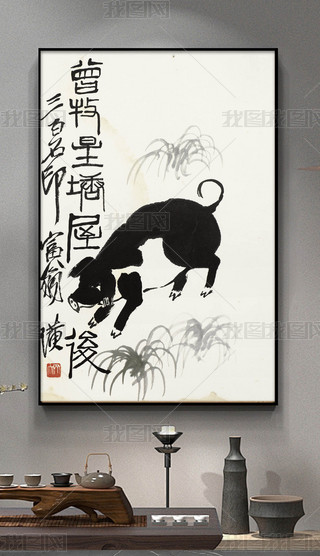 曾牧星塘屋後
三百石印富翁 璜
我图网